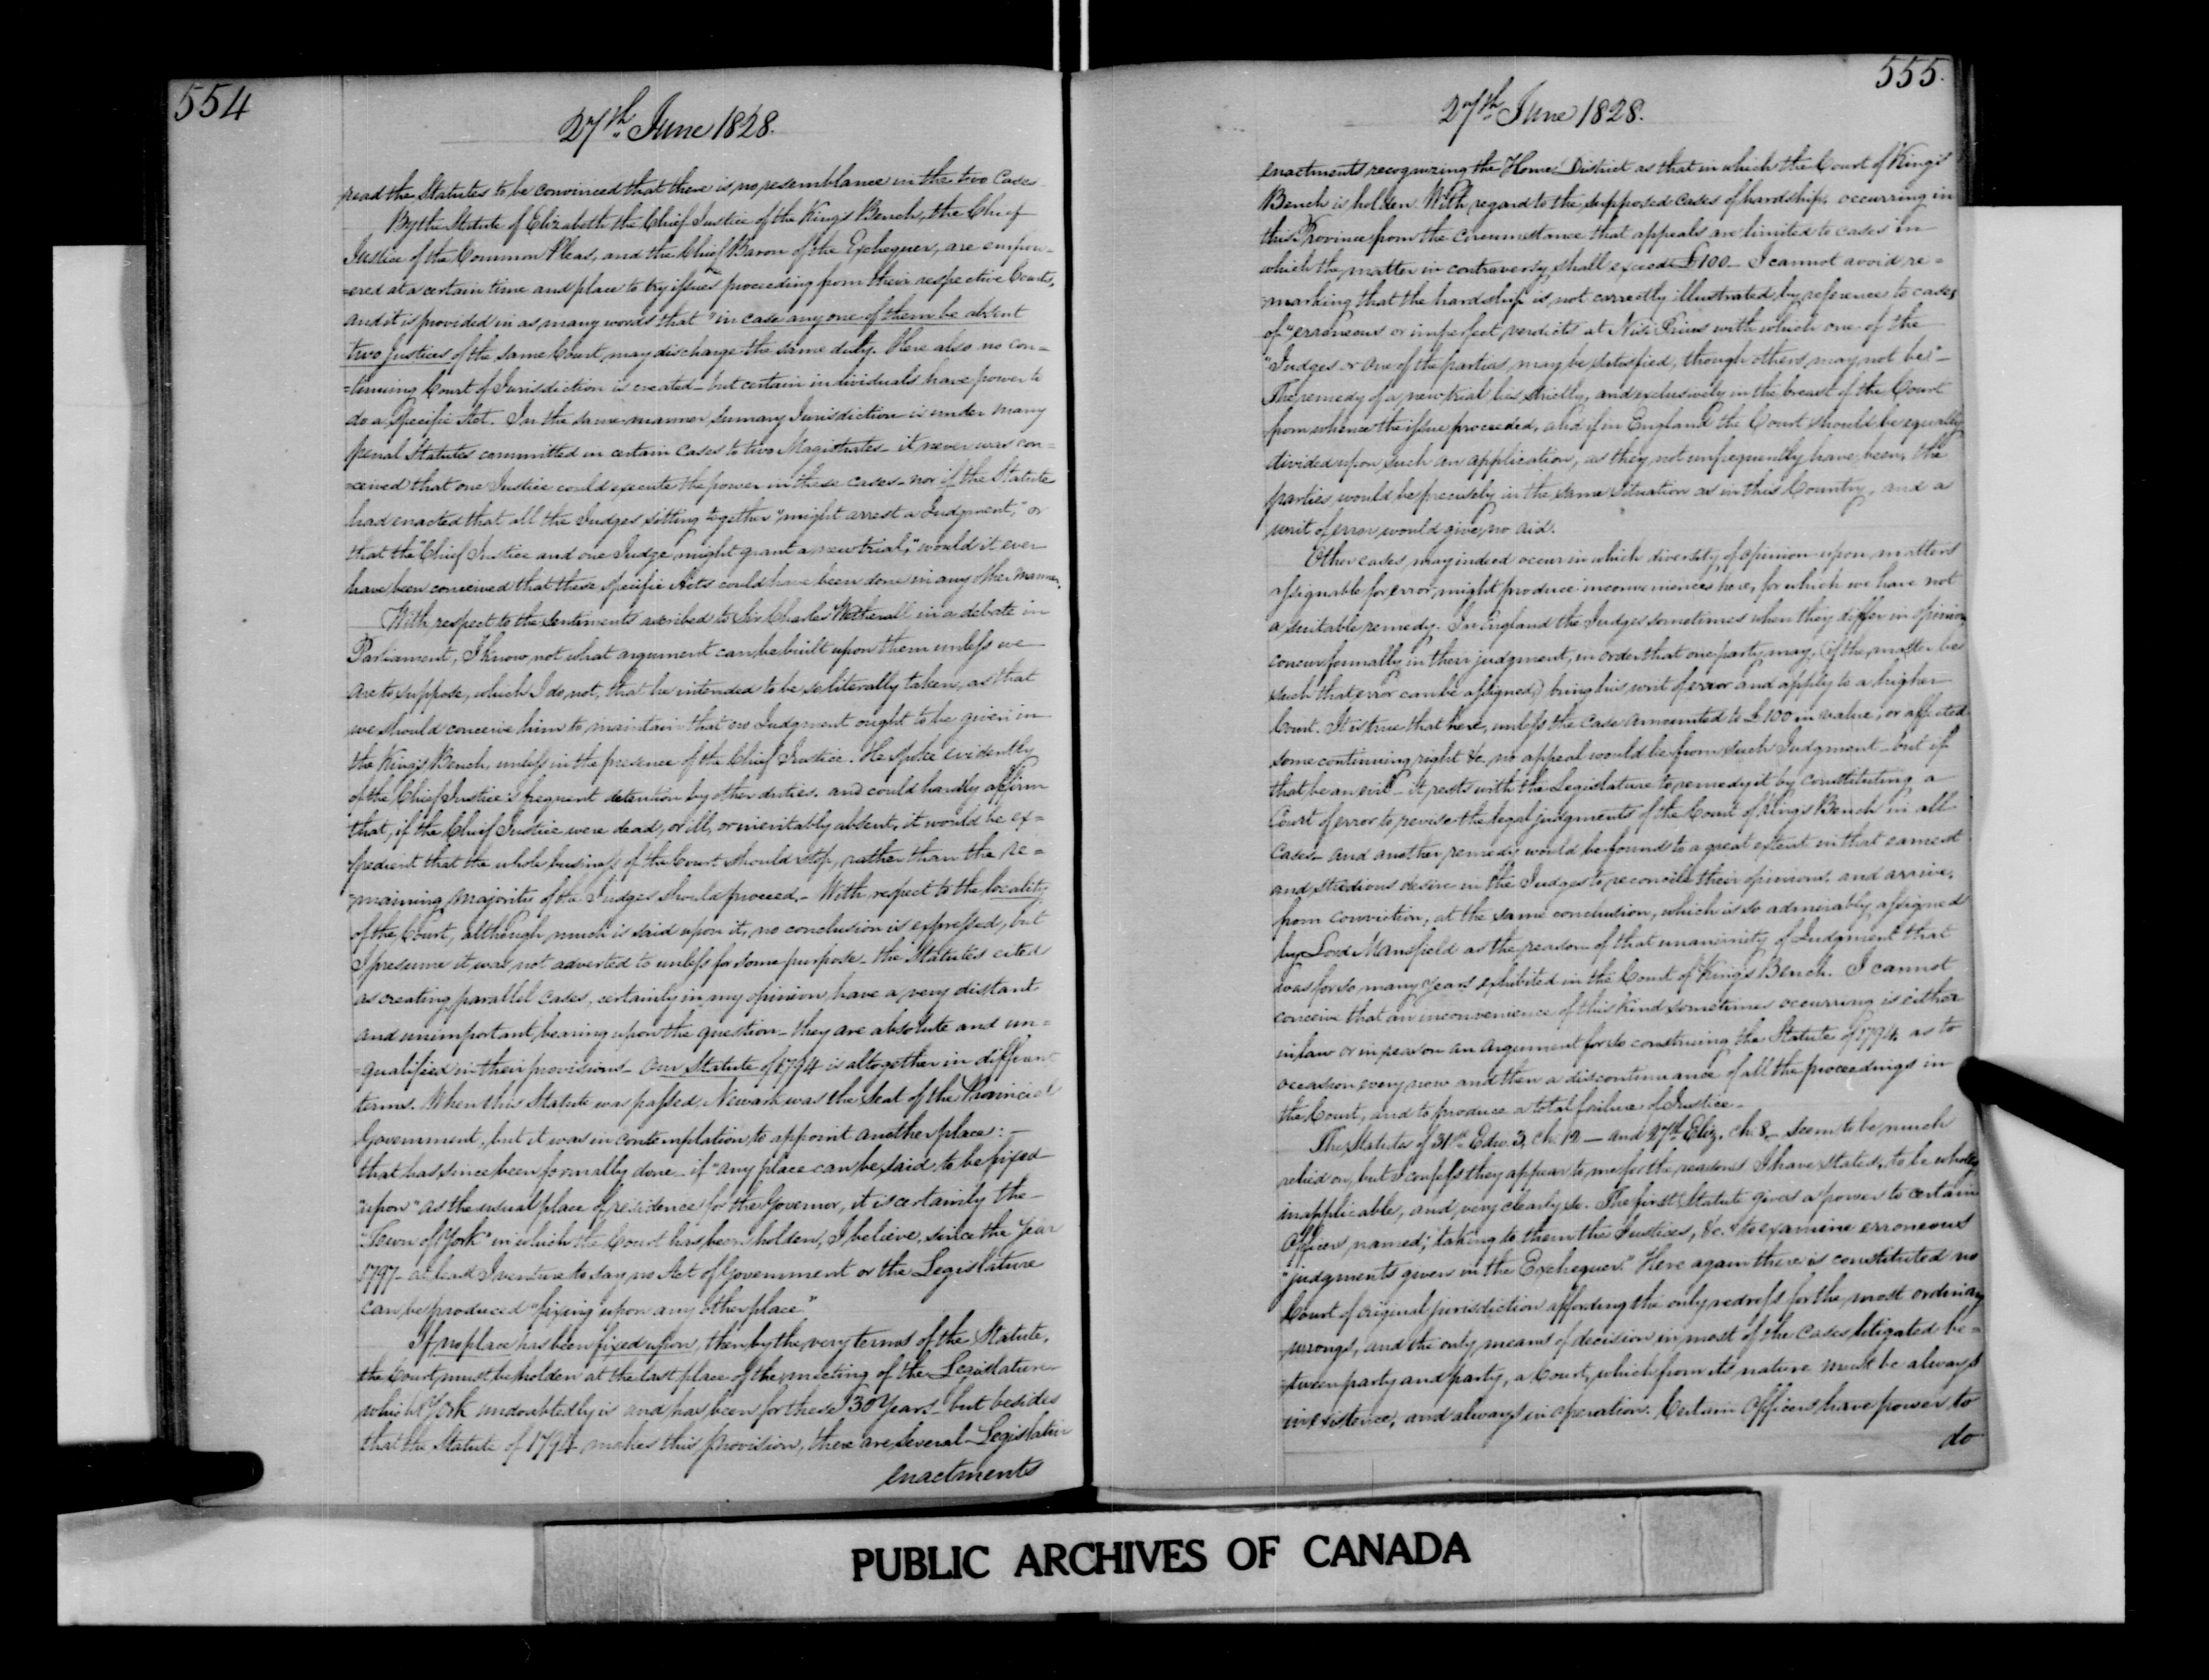 554
27th June 1828.
read the Statutes to be convinced that there is no resemblance in the two Cases
By the Statute of Elizabeth the Chief Justice of the King's Bench, the Chief
Justice of the Common Pleas, and the Chief Baron of the Exchequer, are empow=
=ered at a certain time and place to try issues proceeding from their respective Courts,
and it is provided in as many words that "in case any one of them be absent
two Justices of the same Court may discharge the same duty. Here also no con=
=tinuing Court of Jurisdiction is created - but certain individuals have power to
do a specific Act. In the same manner sumary Jurisdiction is under many
penal Statutes committed in certain cases to two Magistrates - it never was con=
=ceived that one Justice could execute the power in these cases - nor if the Statute
had enacted that all the Judges sitting together "might arrest a Judgment," or
that the "Chief Justice and one Judge might grant a new trial," would it ever
have been conceived that these specific Acts could have been done in any other manner.
With respect to the sentiments ascribed to Sir Charles Wetherall in a debate in
Parliament, I know not what argument can be built upon them unless we
are to suppose, which I do not, that he intended to be so literally taken, as that
we should conceive him to maintain that no Judgment ought to be given in
the King's Bench, unless in the presence of the Chief Justice. He spoke evidently
of the Chief Justice's frequent detention by other duties, and could hardly affirm
that, if the Chief Justice were dead, or ill, or inevitably absent, it would be ex=
=pedient that the whole business of the Court should stop, rather than the re=
=maining majority of the Judges should proceed. - With respect to the locality
of the Court, although much is said upon it, no conclusion is expressed, but
I presume it was not adverted to unless for some purpose - the Statutes cited
as creating parallel cases, certainly in my opinion have a very distant
and unimportant bearing upon the question - they are absolute and un=
=qualified in their provisions - Our Statute of 1794 is altogether in different
terms. When this Statute was passed, Newark was the Seat of the Provincial
Government, but it was in contemplation to appoint another place: -
that has since been formally done - if "any place can be said to be fixed
"upon" as the usual place of residence for the Governor, it is certainly the
"Town of York" in which the Court has been holden, I believe, since the Year
1797 - at least I venture to say no Act of Government or the Legislature
can be produced "fixing upon any other place"
If no place has been fixed upon, then by the very terms of the Statute,
the Court must be holden at the last place of the meeting of the Legislature
which York undoubtedly is and has been for these 30 Years - but besides
that the Statute of 1794 makes this provision, there are several Legislative
enactments
555.
27th June 1828.
enactments recognizing the Home District as that in which the Court of King's
Bench is holden. With regard to the supposed cases of hardship, occurring in
this Province from the circumstance that appeals are limited to cases in
which the matter in controversy shall exceed £100 - I cannot avoid re=
=marking that the hardship is not correctly illustrated by reference to cases
of "erroneous or imperfect verdicts at Nisi Prius with which one of the
"Judges or one of the parties may be satisfied, though others may not be" -
The remedy of a new trial lies strictly, and exclusively in the breast of the Court
from whence the issue proceeded, and if in England the Court should be equally
divided upon such an application, as they not unfrequently have been, the
parties would be precisely in the same situation as in this Country, and a
writ of error would give no aid.
Other cases may indeed occur in which diversity of opinion upon matters
assignable for error, might produce inconveniences here, for which we have not
a suitable remedy. In England the Judges sometimes when they differ in opinion
concur formally in their judgment, in order that one party may, (if the matter be
such that error can be assigned) bring his writ of error and apply to a higher
Court. It is true that here, unless the case amounted to £100 in value, or affected
some continuing right &c. no appeal would lie from such Judgment - but if
that be an evil - it rests with the Legislature to remedy it by constituting a
Court of error to revise the legal judgments of the Court of King's Bench in all
Cases - and another remedy would be found to a great extent in that earnest
and studious desire in the Judges to reconcile their opinions, and arrive,
from conviction, at the same conclusion, which is so admirably assigned
by Lord Mansfield as the reason of that unanimity of Judgment that
was for so many years exhibited in the Court of King's Bench. I cannot
conceive that an inconvenience of this kind sometimes occurring is either
in law or in reason an argument for so construing the Statute of 1794, as to
occasion every now and then a discontinuance of all the proceedings in
the Court, and to produce a total failure of Justice -
The Statutes of 31st Edw. 3, ch. 12 - and 27th Eliz. ch. 8 - seem to be much
relied on, but I confess they appear to me for the reasons I have stated, to be wholly
inapplicable, and very clearly so. The first Statute gives a power to certain
Officers named; "taking to them the Justices, &c. to examine erroneous
"judgments given in the Exchequer." Here again there is constituted no
Court of original jurisdiction affording the only redress for the most ordinary
wrongs, and the only means of decision in most of the cases litigated be=
=tween party and party, a Court, which from its nature must be always
in existence, and always in operation. Certain Officers have power to
do
PUBLIC ARCHIVES OF CANADA